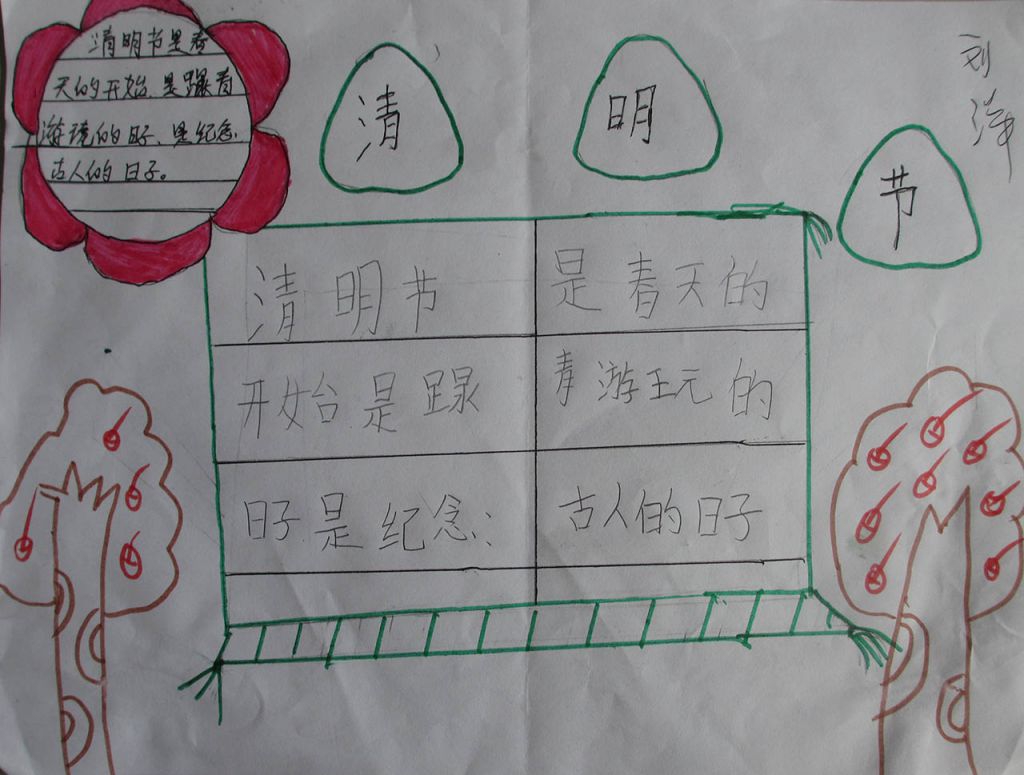 清明节是春
天的开始.是踩青
游琓的日子、是纪念
古人的日子。
清
明
节
刘
洋
清明节
是春天的
开始是踩
青游玩的
日子是纪念
古人的日子